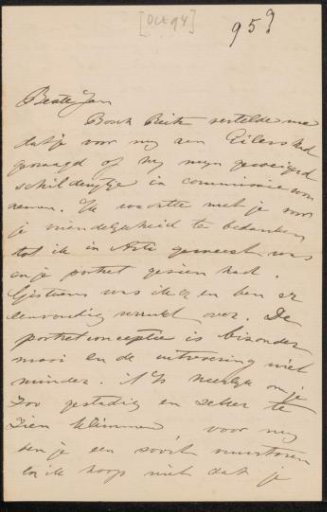 [Oct 94]
95?
Beste Jan
Bosch Reitz vertelde me
dat je voor mij aan Eilers had
gevraagd of hij mijn geweigerd
schilderijtje in commissie wou
nemen. Ik wachtte met je voor
je vriendelijkheid te bedanken
tot ik in Arti geweest was
en je portret gezien had.
Gisteren was ik er en ben er
eenvoudig verrukt over. De
portretconceptie is bizonder
mooi en de uitvoering niet
minder. 't Is heerlijk om je
zoo gestadig en zeker te
zien klimmen voor mij
ben je een soort
en ik hoop niet dat je